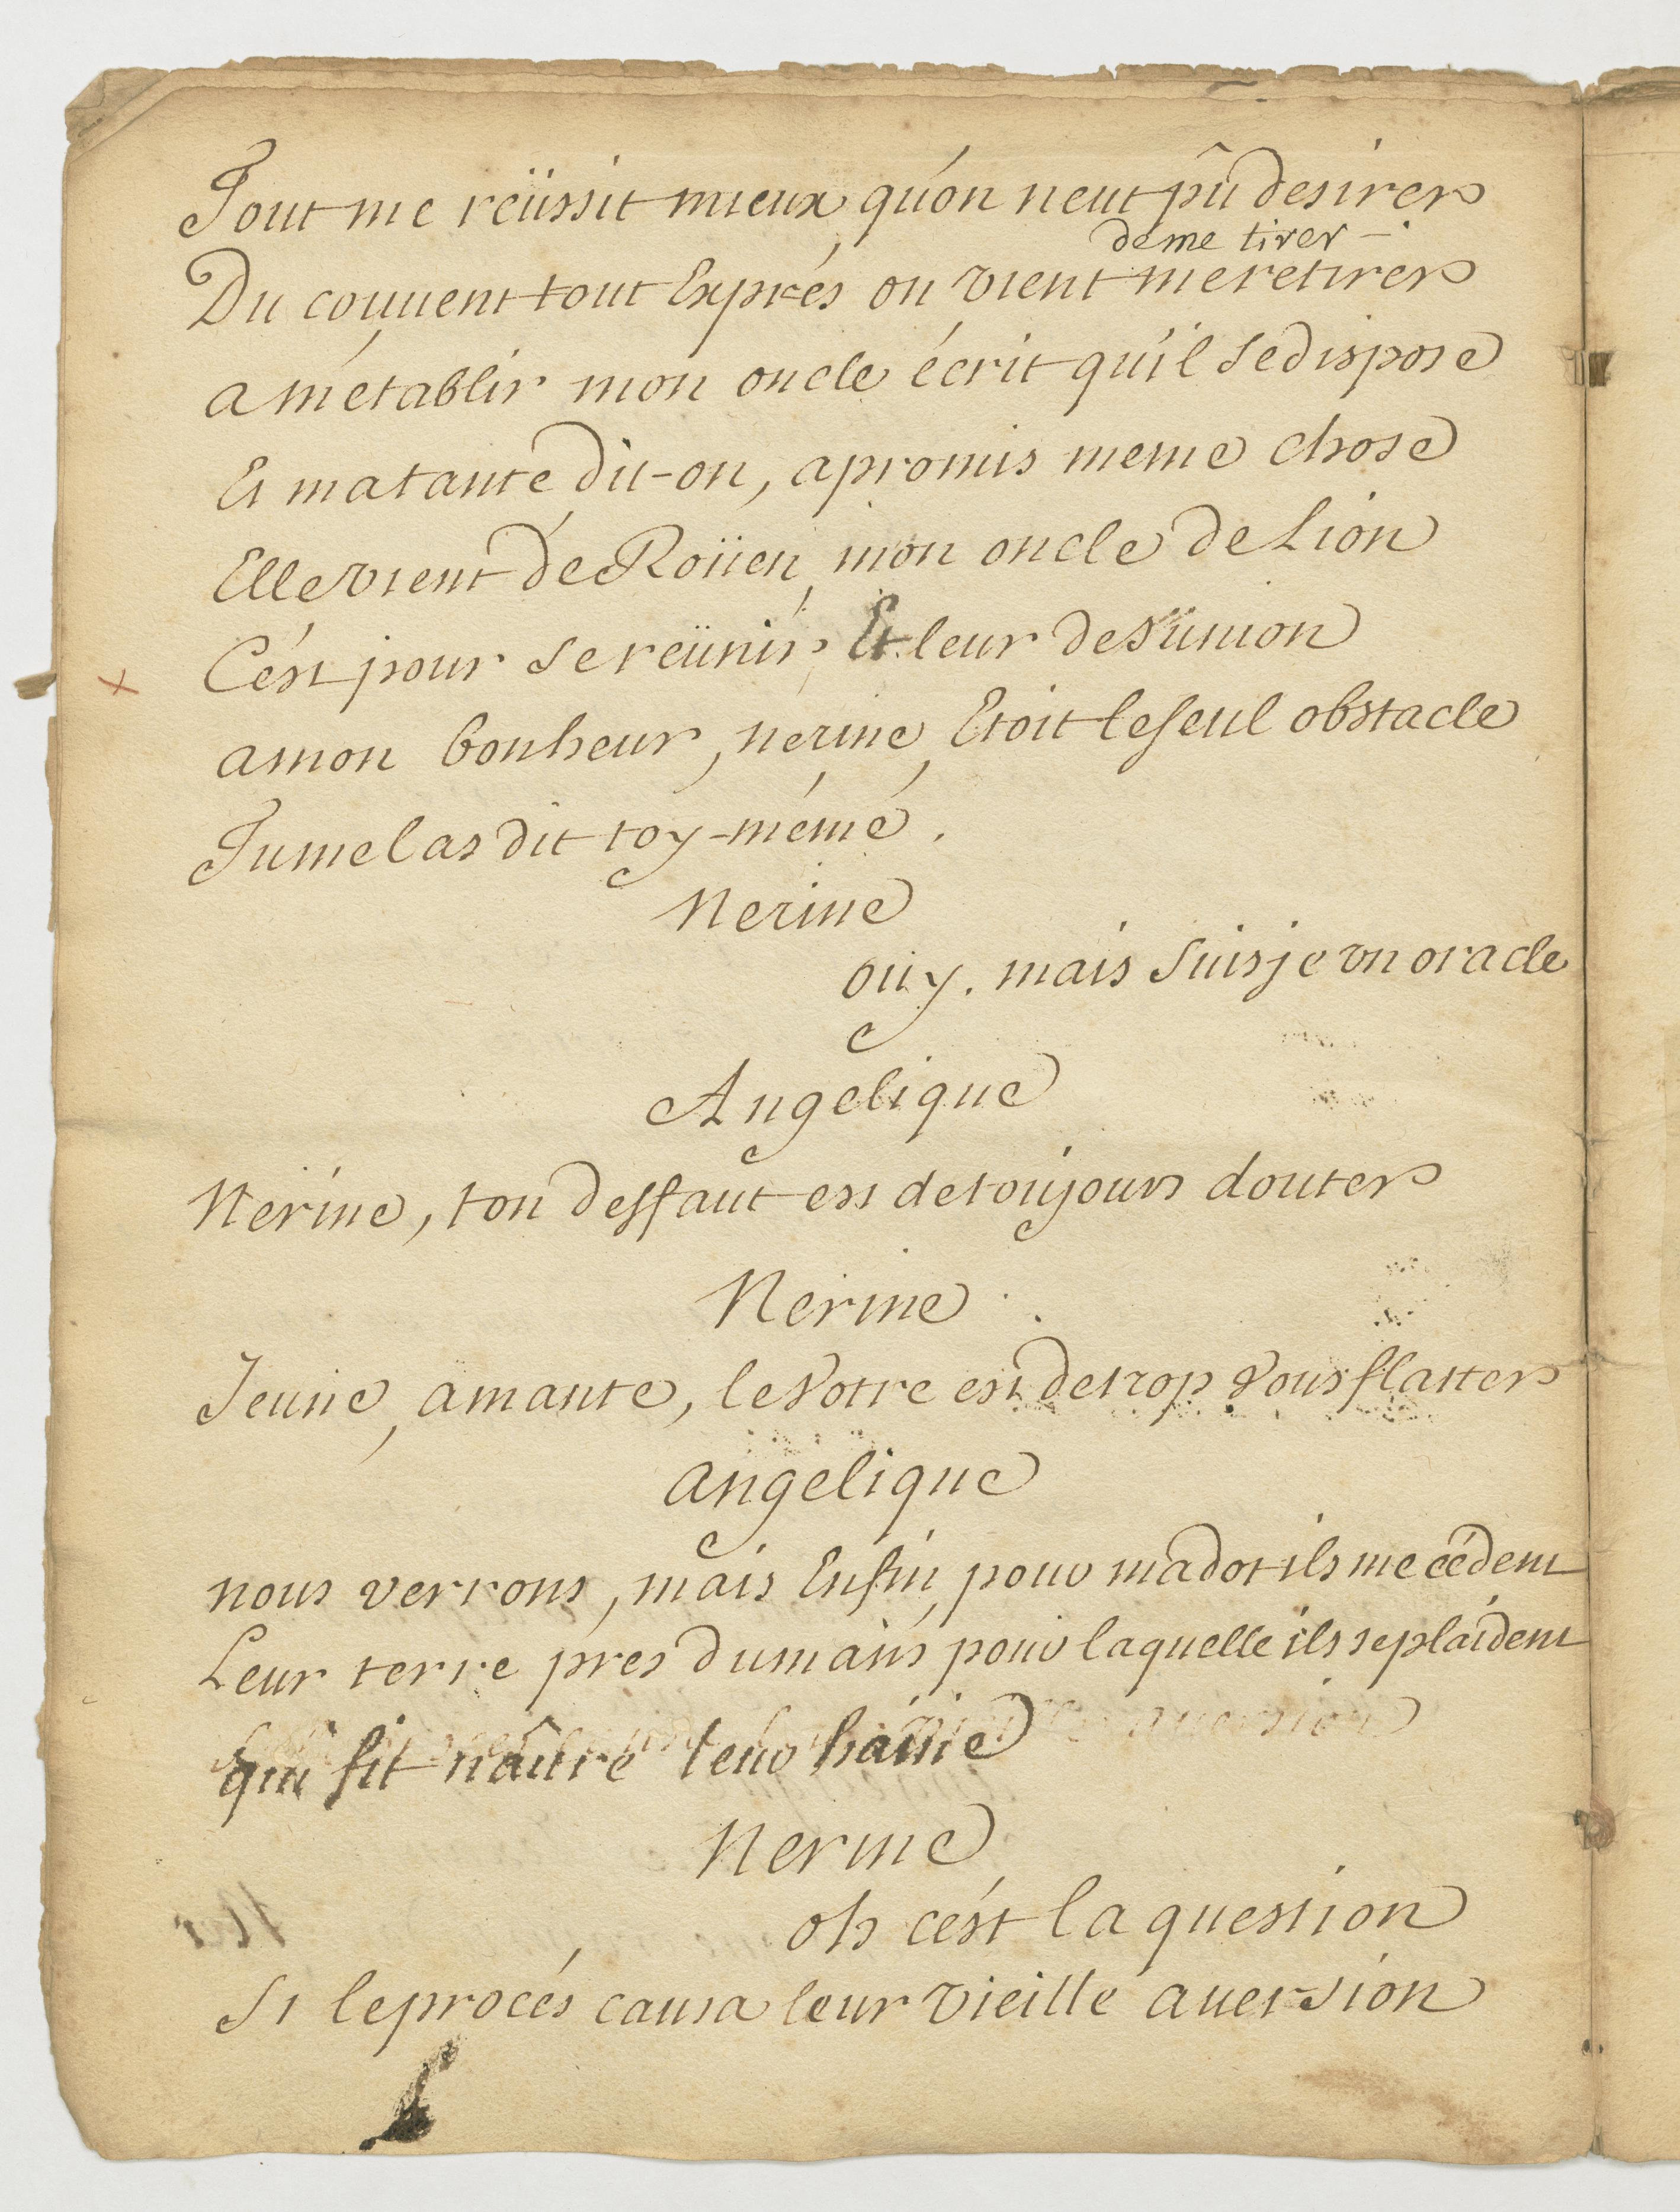 Tout me reüssit mieux qu'on neut pû desirer
de me tirer
Du couuent tout Exprés on vient me retirer
a m'établir mon oncle écrit qu'il se dispose
Et ma tante dit-on, a promis meme chose
Elle vient de Roüen, mon oncle de Lion
C'est pour se reünir, Et leur desünion
a mon bonheur, nerine, Etoit le seul obstacle
Tu me las dit toy-méme.
Nerine
ouy. mais suis je vn oracle
Angelique
Nérine, ton deffaut est de toujours douter
Nerine.
Jeune, amante, le votre est de trop vous flatter
angelique
nous verrons, mais Enfin, pour ma dot ils me cédent
Leur terre pres du mans, pour laquelle ils se plaident
qui fit naître leur haine
Nerine
oh c'est la question
si le procés causa leur vieille auersion